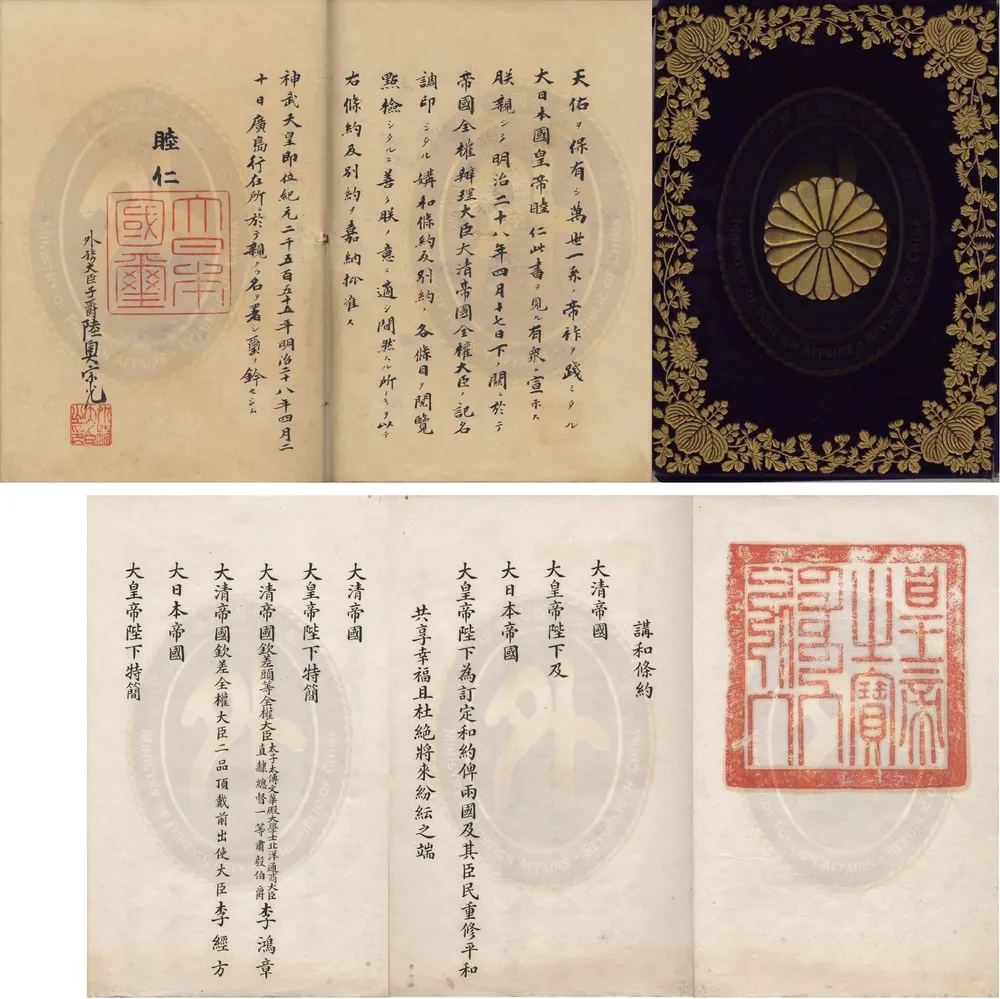 天佑ヲ保有シ萬世一系ノ帝祚ヲ踐ミタル
大日本國皇帝睦仁此書ヲ見ル有衆ニ宣示ス
朕親シク明治二十八年四月十七日下ノ關ニ於テ
帝國全權辨理大臣大清帝國全權大臣ノ記名
調印シタル媾和條約及別約ノ各條目ヲ閲覽
點檢シタルニ善ク朕ノ意ニ適シ間然スル所ナキヲ以テ
右條約及別約ヲ嘉納批准ス
神武天皇即位紀元二千五百五十五年明治二十八年四月二
十日廣島行在所ニ於テ親ラ名ヲ署シ璽ヲ鈐セシム
睦仁
大日本國璽
外務大臣子爵陸奧宗光
MINISTRY OF FOREIGN AFFAIRS - REPUBLIC OF CHINA
皇帝之寶
講和條約
大清帝國
大皇帝陛下及
大日本帝國
大皇帝陛下為訂定和約俾兩國及其臣民重修平和
共享幸福且杜絕將來紛紜之端
大清帝國
大皇帝陛下特簡
大清帝國欽差頭等全權大臣太子太傅文華殿大學士北洋通商大臣直隸總督一等肅毅伯爵李鴻章
大清帝國欽差全權大臣二品頂戴前出使大臣李經方
大日本帝國
大皇帝陛下特簡
外
MINISTRY OF FOREIGN AFFAIRS - REPUBLIC OF CHINA